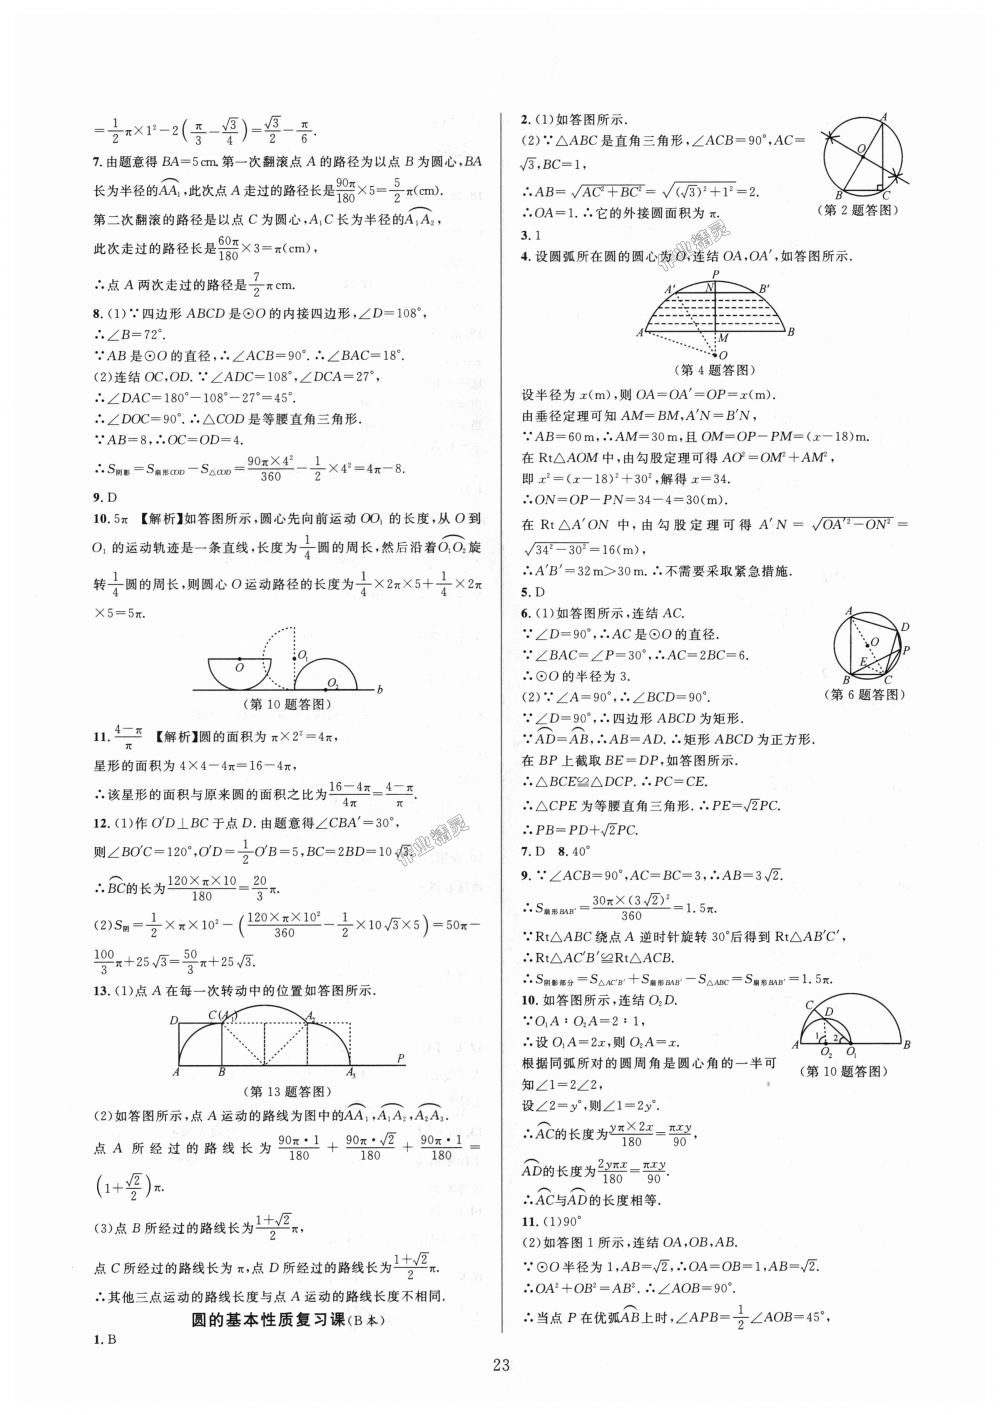 =1/2π×1²-2(π/3-√3/4)=√3/2-π/6.
7.由题意得BA=5cm.第一次翻滚点A的路径为以点B为圆心,BA
长为半径的⌒AA₁,此次点A走过的路径长是90π/180×5=5/2π(cm).
第二次翻滚的路径是以点C为圆心,A₁C长为半径的⌒A₁A₂,
此次走过的路径长是60π/180×3=π(cm),
∴点A两次走过的路径是7/2πcm.
8.(1)∵四边形ABCD是⊙O的内接四边形,∠D=108°,
∴∠B=72°.
∵AB是⊙O的直径,∴∠ACB=90°.∴∠BAC=18°.
(2)连结OC,OD.∵∠ADC=108°,∠DCA=27°,
∴∠DAC=180°-108°-27°=45°.
∴∠DOC=90°.∴△COD是等腰直角三角形.
∵AB=8,∴OC=OD=4.
∴S阴影=S扇形COD-S△COD=90π×4²/360-1/2×4²=4π-8.
9.D
10.5π 【解析】如答图所示,圆心先向前运动OO₁的长度,从O到
O₁的运动轨迹是一条直线,长度为1/4圆的周长,然后沿着⌒O₁O₂旋
转1/4圆的周长,则圆心O运动路径的长度为1/4×2π×5+1/4×2π
×5=5π.
O O₁ O₂ b
(第10题答图)
11.4-π/π 【解析】圆的面积为π×2²=4π,
星形的面积为4×4-4π=16-4π,
∴该星形的面积与原来圆的面积之比为16-4π/4π=4-π/π.
12.(1)作O′D⊥BC于点D.由题意得∠CBA′=30°,
则∠BO′C=120°,O′D=1/2O′B=5,BC=2BD=10√3.
∴⌒BC的长为120×π×10/180=20/3π.
(2)S阴=1/2×π×10²-(120×π×10²/360-1/2×10√3×5)=50π-
100/3π+25√3=50/3π+25√3.
13.(1)点A在每一次转动中的位置如答图所示.
D C(A₁) A₂
A B A₃ P
(第13题答图)
(2)如答图所示,点A运动的路线为图中的⌒AA₁,⌒A₁A₂,⌒A₂A₃.
点A所经过的路线长为90π·1/180+90π·√2/180+90π·1/180=
(1+√2/2)π.
(3)点B所经过的路线长为1+√2/2π,
点C所经过的路线长为π,点D所经过的路线长为1+√2/2π.
∴其他三点运动的路线长度与点A运动的路线长度不相同.
圆的基本性质复习课(B本)
1.B
2.(1)如答图所示.
(2)∵△ABC是直角三角形,∠ACB=90°,AC=
√3,BC=1,
∴AB=√AC²+BC²=√(√3)²+1²=2.
∴OA=1.∴它的外接圆面积为π.
A O B C
(第2题答图)
3.1
4.设圆弧所在圆的圆心为O,连结OA,OA′,如答图所示.
P
A′ N B′
A M B
O
(第4题答图)
设半径为x(m),则OA=OA′=OP=x(m).
由垂径定理可知AM=BM,A′N=B′N,
∵AB=60m,∴AM=30m,且OM=OP-PM=(x-18)m.
在Rt△AOM中,由勾股定理可得AO²=OM²+AM²,
即x²=(x-18)²+30²,解得x=34.
∴ON=OP-PN=34-4=30(m).
在Rt△A′ON中,由勾股定理可得A′N=√OA′²-ON²=
√34²-30²=16(m),
∴A′B′=32m>30m.∴不需要采取紧急措施.
5.D
6.(1)如答图所示,连结AC.
∵∠D=90°,∴AC是⊙O的直径.
∵∠BAC=∠P=30°,∴AC=2BC=6.
∴⊙O的半径为3.
(2)∵∠A=90°,∴∠BCD=90°.
∵∠D=90°,∴四边形ABCD为矩形.
∵⌒AD=⌒AB,∴AB=AD.∴矩形ABCD为正方形.
在BP上截取BE=DP,如答图所示.
∴△BCE≌△DCP.∴PC=CE.
∴△CPE为等腰直角三角形.∴PE=√2PC.
∴PB=PD+√2PC.
A D O P E B C
(第6题答图)
7.D 8.40°
9.∵∠ACB=90°,AC=BC=3,∴AB=3√2.
∴S扇形BAB′=30π×(3√2)²/360=1.5π.
∵Rt△ABC绕点A逆时针旋转30°后得到Rt△AB′C′,
∴Rt△AC′B′≌Rt△ACB.
∴S阴影部分=S△AC′B′+S扇形BAB′-S△ABC=S扇形BAB′=1.5π.
10.如答图所示,连结O₂D.
∵O₁A∶O₂A=2∶1,
∴设O₁A=2x,则O₂A=x.
根据同弧所对的圆周角是圆心角的一半可
知∠1=2∠2,
设∠2=y°,则∠1=2y°.
∴⌒AC的长度为yπ×2x/180=πxy/90,
⌒AD的长度为2yπx/180=πxy/90.
∴⌒AC与⌒AD的长度相等.
C D 1 2
A O₂ O₁ B
(第10题答图)
11.(1)90°
(2)如答图1所示,连结OA,OB,AB.
∵⊙O半径为1,AB=√2,∴OA=OB=1,AB=√2.
∴OA²+OB²=AB².∴∠AOB=90°.
∴当点P在优弧⌒AB上时,∠APB=1/2∠AOB=45°,
23
作业精灵
作业精灵